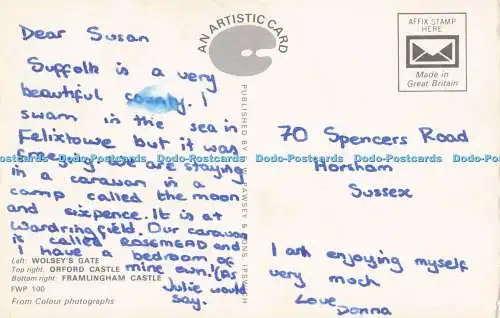 Dear Susan
Suffolk is a very
beautiful county. I
swam in the sea in
Felixtowe but it was
freezing. We are staying
in a caravan in a
camp called the moon
and sixpence. It is at
Wardringfield. Our caravan
is called ROSEMEAD and
I have a bedroom of
mine own! (As
Julie would
say.
Left: WOLSEY'S GATE
Top right: ORFORD CASTLE
Bottom right: FRAMLINGHAM CASTLE
FWP 100
From Colour photographs
AN ARTISTIC CARD
PUBLISHED BY F. W. PAWSEY & SONS, IPSWICH
AFFIX STAMP
HERE
Made in
Great Britain
70 Spencers Road
Horsham
Sussex
I am enjoying myself
very moch
Love
Donna
Dodo-Postcards Dodo-Postcards Dodo-Postcards Dodo-Postcards Dodo-Postcards Dodo-Postcards